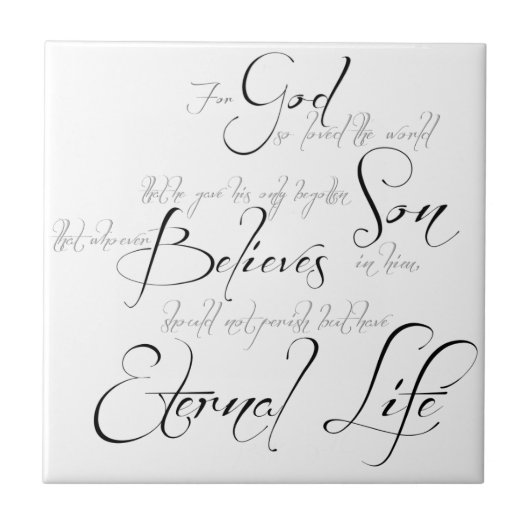 For God
so loved the world
that he gave his only begotten Son
that who ever Believes in him,
should not perish but have
Eternal Life